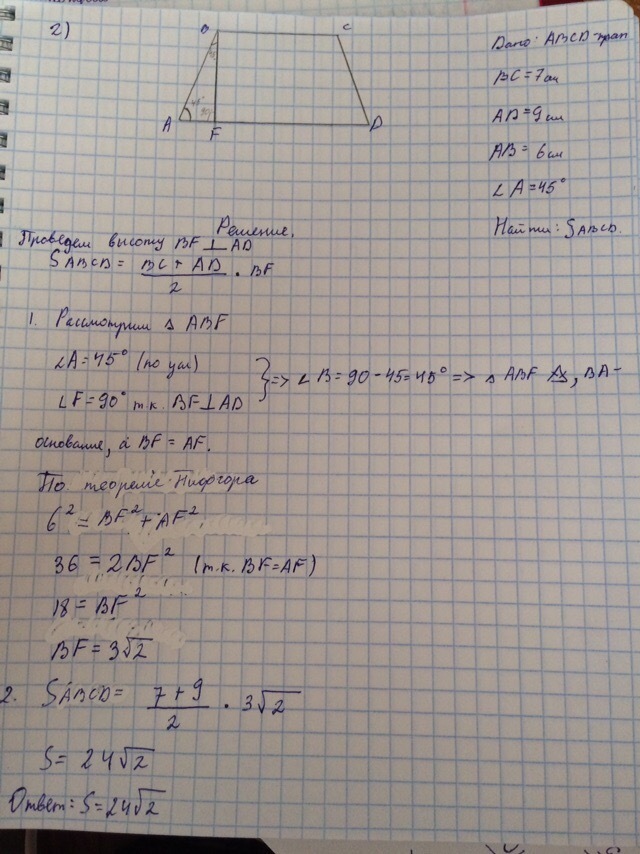 2)
C
A
F
D
Дано: ABCD-трап
BC=7см
AD=9см
AB=6см
∠A=45°
Найти: SABCD.
Решение.
Проведем высоту BF⊥AD
SABCD = (BC+AD)/2 · BF
1. Рассмотрим △ ABF
∠A=45° (по усл)
∠F=90° т.к. BF⊥AD
} => ∠B=90-45=45° => △ ABF, BA-
основание, а BF=AF.
По теореме Пифгора
6²=BF²+AF²
36=2BF² (т.к. BF=AF)
18=BF²
BF=3√2
2. SABCD= (7+9)/2 · 3√2
S= 24√2
Ответ: S=24√2